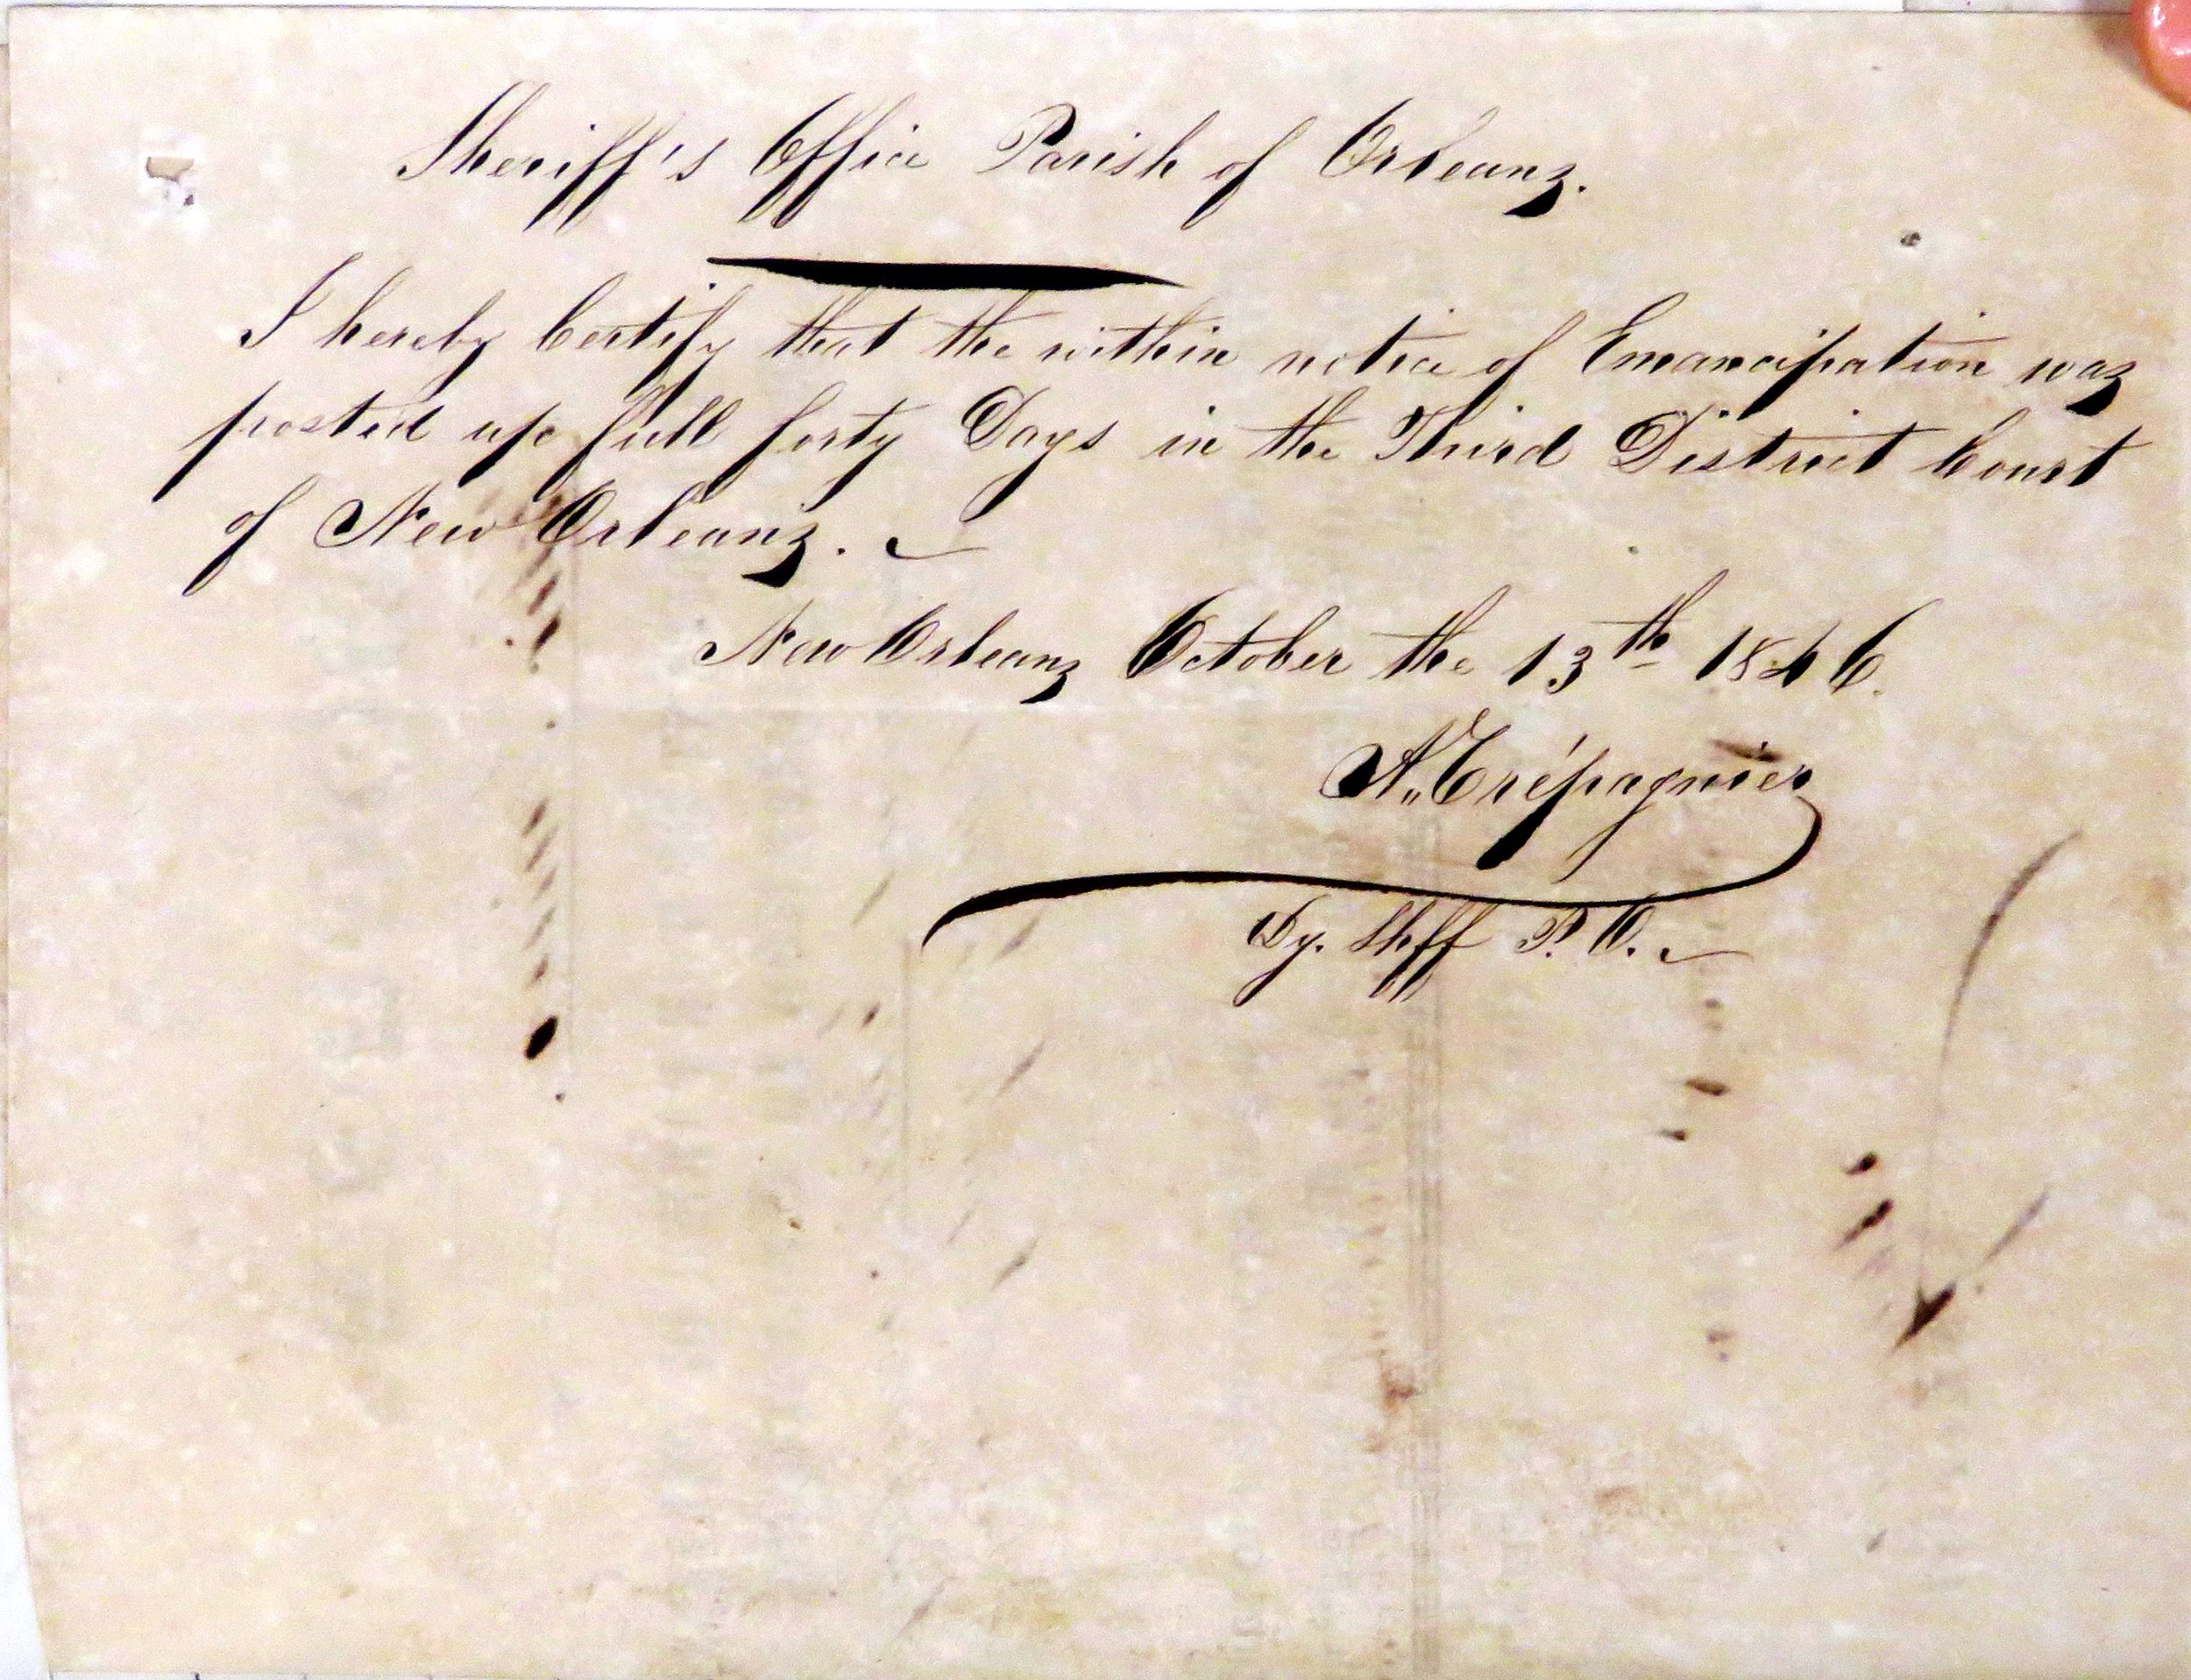 Sheriff's Office Parish of Orleans.
I hereby Certify that the within notice of Emancipation was
posted up full forty Days in the Third District Court
of New Orleans.
New Orleans October the 13th 1846.
A. Trépagnier
Dy. Shff P. O.